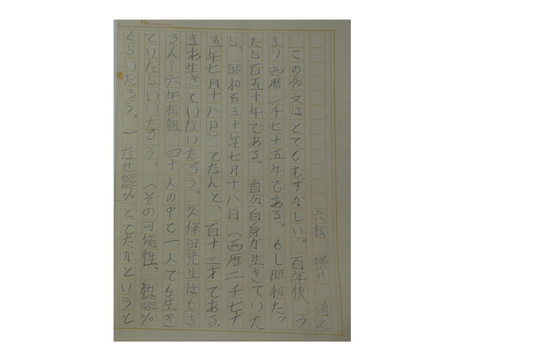 六松
この作文はとてもむずかしい。百年後、つ
まり西暦二千七十五年である。もし昭和だっ
たら百五十年である。自分自身が生きていた
ら、昭和百五十年七月十八日(西暦二千七十
五年七月十八日)でなんと、百十二才である。
まあ生きていないだろう。久保田先生はもち
ろん!六年松組 四十人の中で一人でも生き
ていたらいいだろう。(その可能性、約%
くらいだろう。)なぜ%とでたかというと